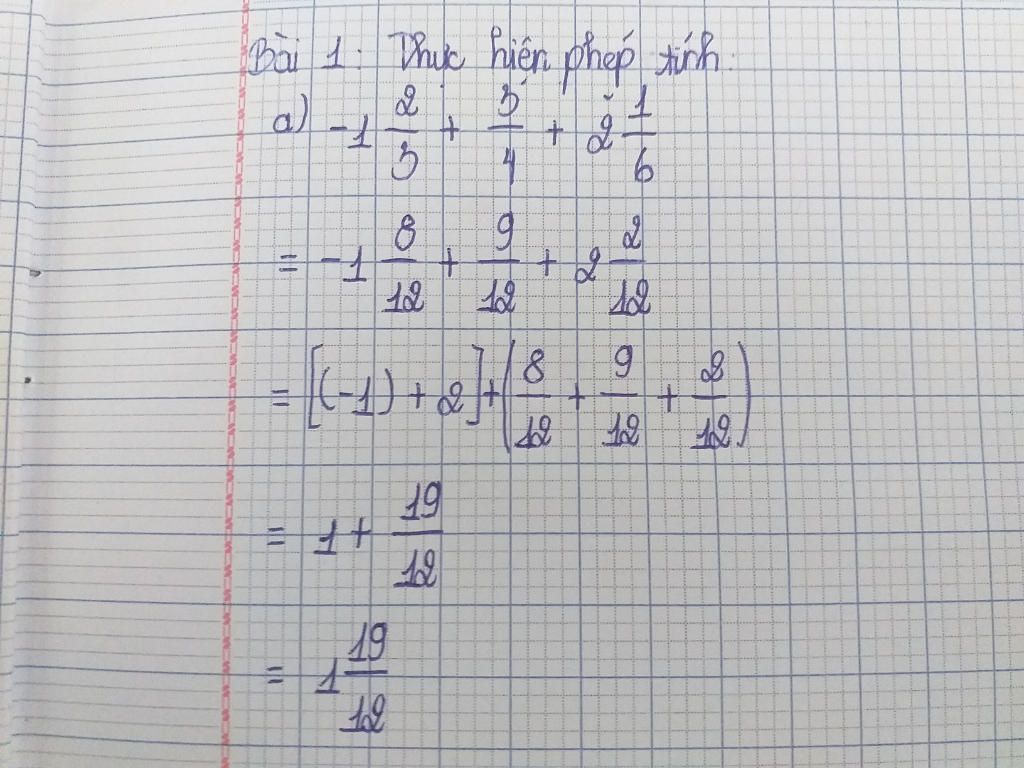 Bài 1: Thực hiện phép tính:
a) -1 2/3 + 3/4 + 2 1/6
= -1 8/12 + 9/12 + 2 2/12
= [(-1) + 2] + (8/12 + 9/12 + 2/12)
= 1 + 19/12
= 1 19/12